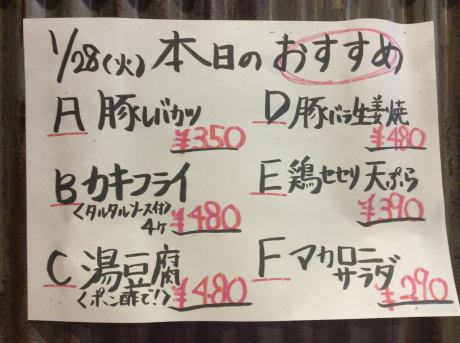 1/28(火) 本日の おすすめ
A 豚レバカツ
¥350
B カキフライ
<タルタルソース付>
4ケ ¥480
C 湯豆腐
<ポン酢で!> ¥480
D 豚バラ生姜焼
¥480
E 鶏セセリ天ぷら
¥390
F マカロニ
サラダ
¥290